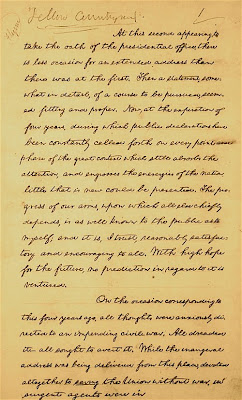 Fellow Countrymen:
1
At this second appearing to
take the oath of the presidential office, there
is less occasion for an extended address than
there was at the first. Then a statement, some
what in detail, of a course to be pursued, seem
ed fitting and proper. Now, at the expiration of
four years, during which public declarations have
been constantly called forth on every point and
phase of the great contest which still absorbs the
attention, and engrosses the energies of the nation,
little that is new could be presented. The pro
gress of our arms, upon which all else chiefly
depends, is as well known to the public as to
myself; and it is, I trust, reasonably satisfac
tory and encouraging to all. With high hope
for the future, no prediction in regard to it is
ventured.
On the occasion corresponding to
this four years ago, all thoughts were anxiously di
rected to an impending civil war. All dreaded
it— all sought to avert it. While the inaugural
address was being delivered from this place, devoted
altogether to saving the Union without war, in
surgent agents were in